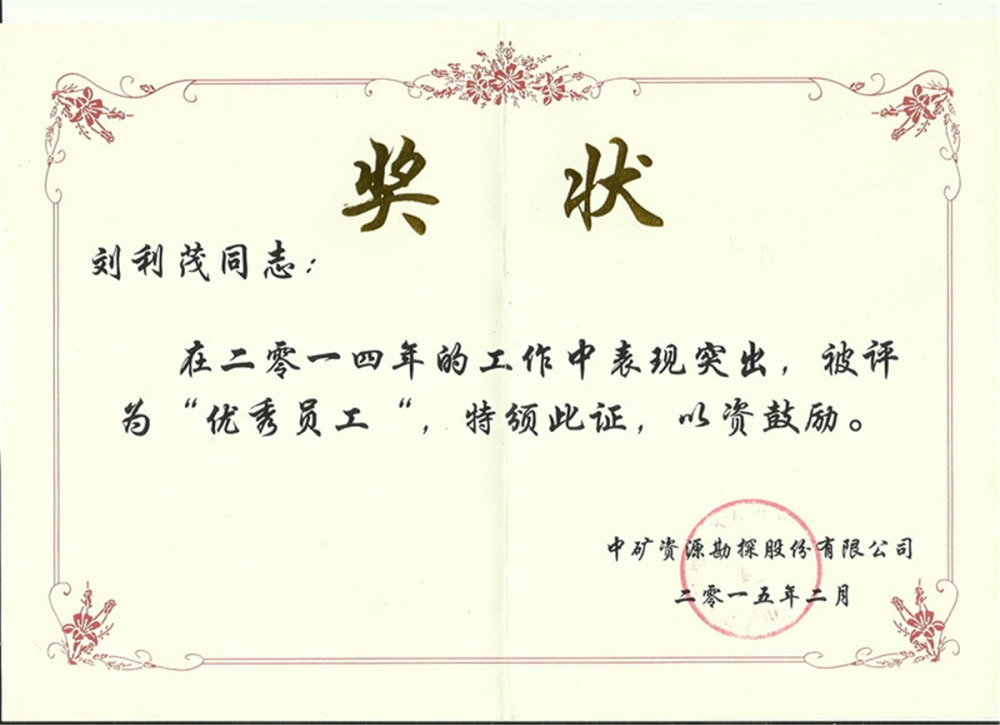 奖状
刘利茂同志：
在二零一四年的工作中表现突出，被评
为“优秀员工“，特颁此证，以资鼓励。
中矿资源勘探股份有限公司
二零一五年二月